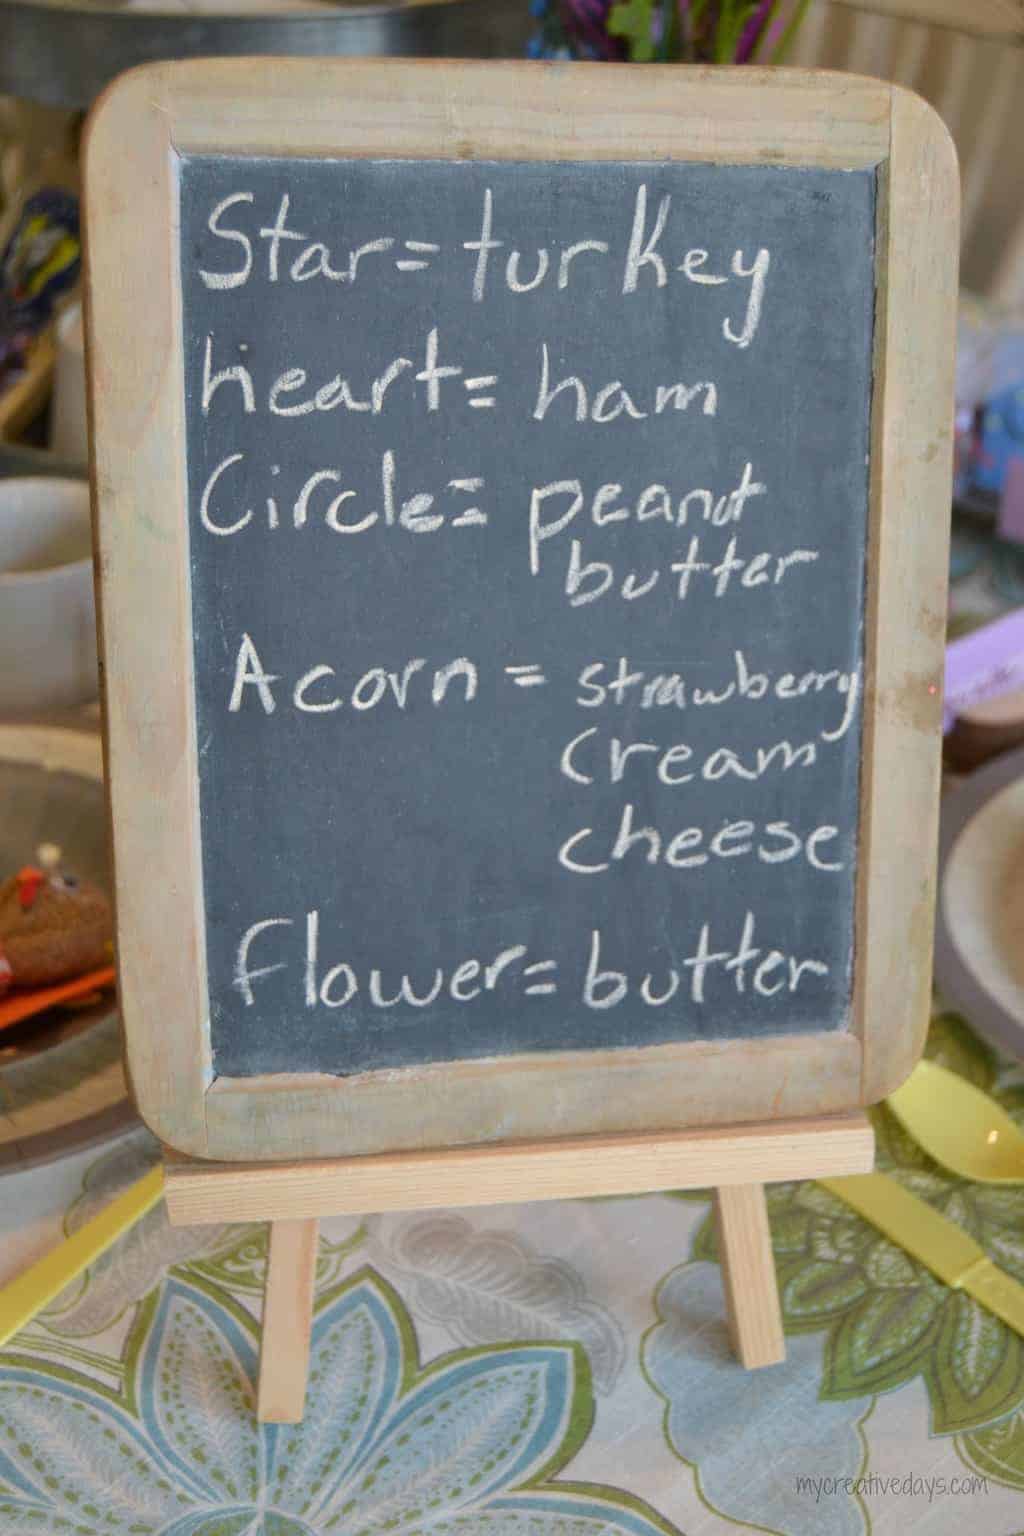 Star= turkey
heart= ham
Circle= peanut
butter
Acorn = strawberry
cream
cheese
flower= butter
mycreativedays.com